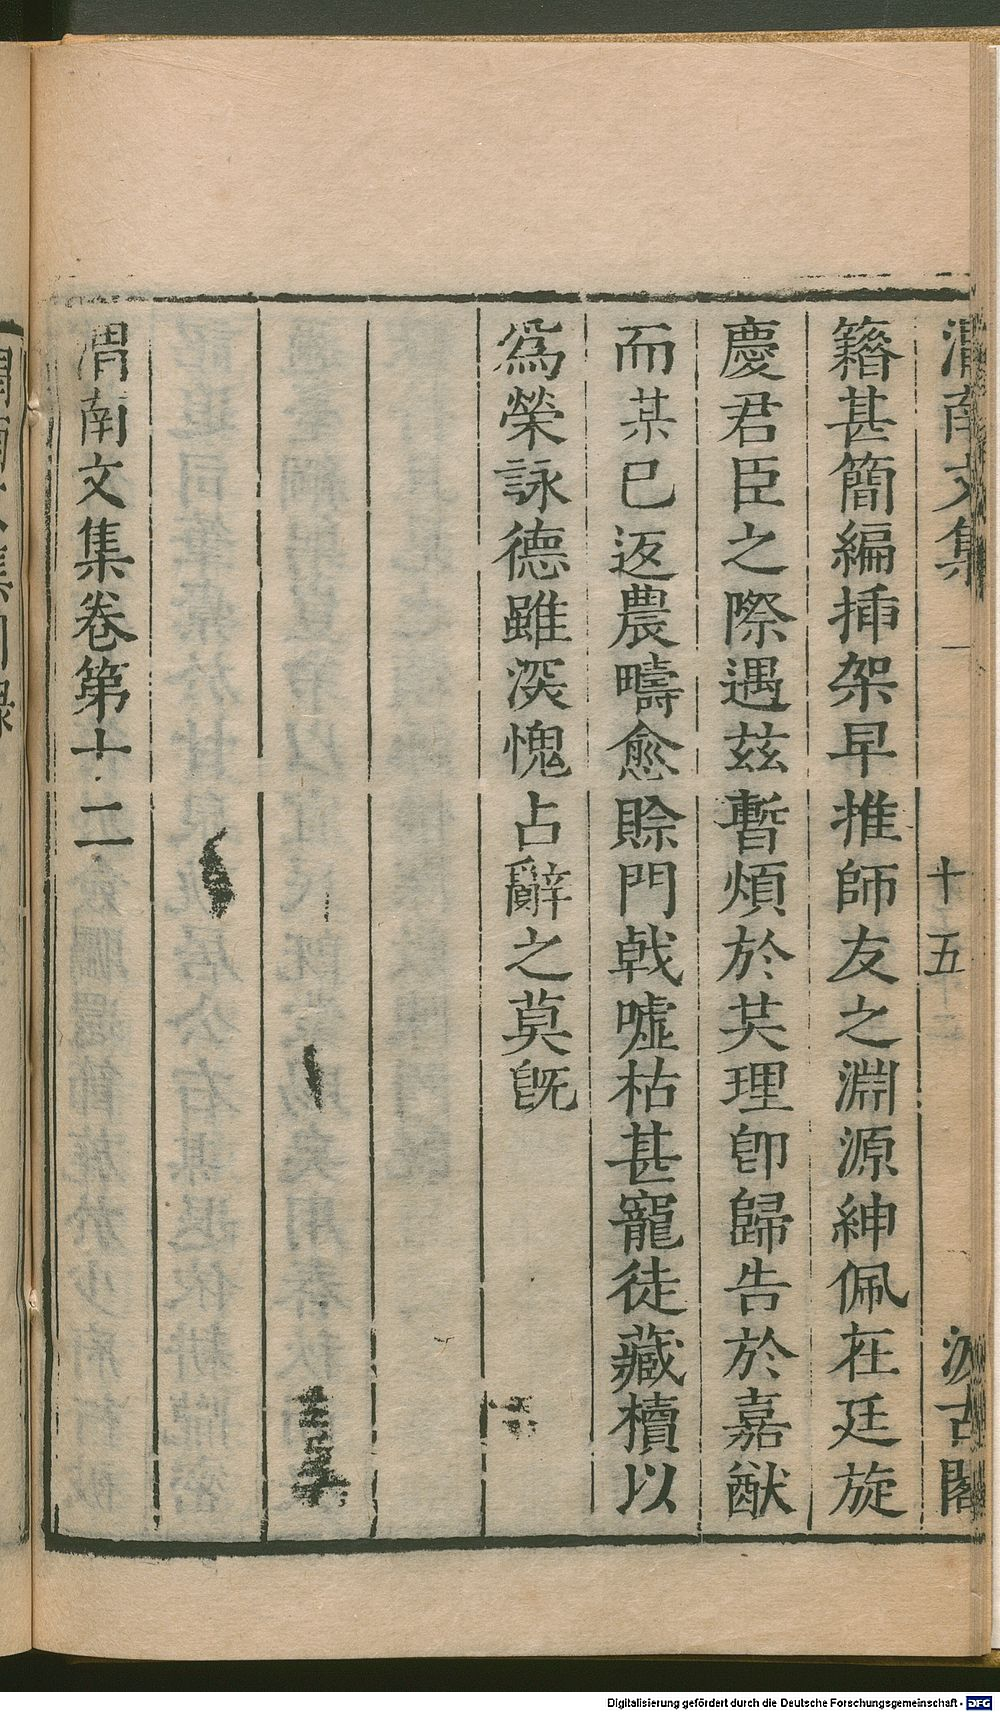 渭南文集
十五
汲古閣
籍甚簡編揷架早推師友之淵源紳佩在廷旋
慶君臣之際遇茲暫煩於共理卽歸告於嘉猷
而某已返農疇愈賒門戟噓枯甚寵徒藏櫝以
爲榮詠德雖深愧占辭之莫旣
渭南文集卷第十二
Digitalisierung gefördert durch die Deutsche Forschungsgemeinschaft - DFG